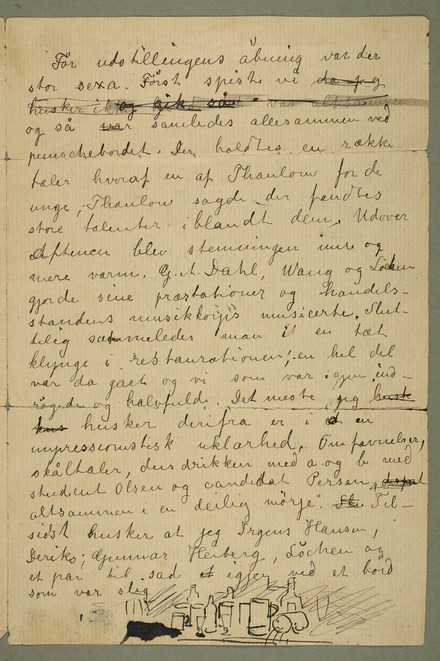 Før udstillingens åbning var der
stor sexa. Først spiste vi da jeg
husker ikke og gik så var altsammen
og så var samledes allesammen ved
punschebordet. Der holdtes en række
taler hvoraf en af Thaulow for de
unge, Thaulow sagde der fandtes
store talenter iblandt dem. Udover
Aftenen blev stemningen mere og
mere varm. G.A. Dahl, Wang og Løchen
gjorde sine præstationer og handels-
standens musikkorps musicerte. Slut-
telig sammeledes man i en tæt
klynge i restaurationen; en hel del
var da gået og vi som var igjen, ind-
røgede og halvfulde. Det meste jeg husk
hus husker derifra er i en
impressionistisk uklarhed. Omfavnelser,
skåltaler, dusdrikken med a og b med
student Olsen og candidat Persen,
altsammen i en deilig mørje. Til-
sidst husker at jeg Irgens Hansen,
Deriks, Gunnar Heiberg, Løchen og
et par til sad igjen ved et bord
som var slig